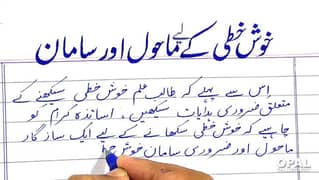 خوش خطی کے لیے ماحول اور سامان
اِس سے پہلے کہ طالب علم خوش خطی سیکھنے کے
متعلق ضروری ہدایات سیکھیں۔ اساتذہ کرام کو
چاہیے کہ خوش خطی سکھانے کے لیے ایک ساز گار
ماحول اور ضروری سامان خوش
OPAL